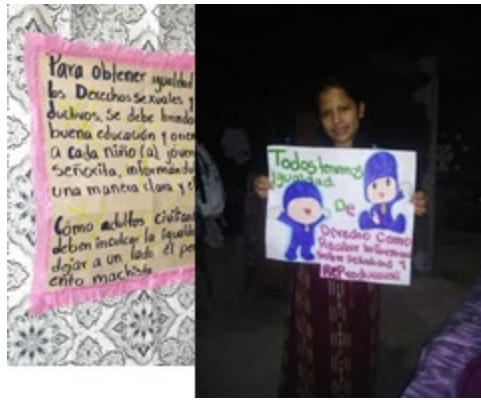 Para obtener igualdad
los Derechos sexuales y
ductivos, se debe
buena educación y orien
a cada niño(a) joven
señorita, informándo
una manera clara y e
Cómo adultos civiliza
deben inculcar la igualda
dejar a un lado el pe
ento machista.
Todos tenemos
igualdad
De
Derecho Como
Recibir
sobre sexualidad y
REProducción